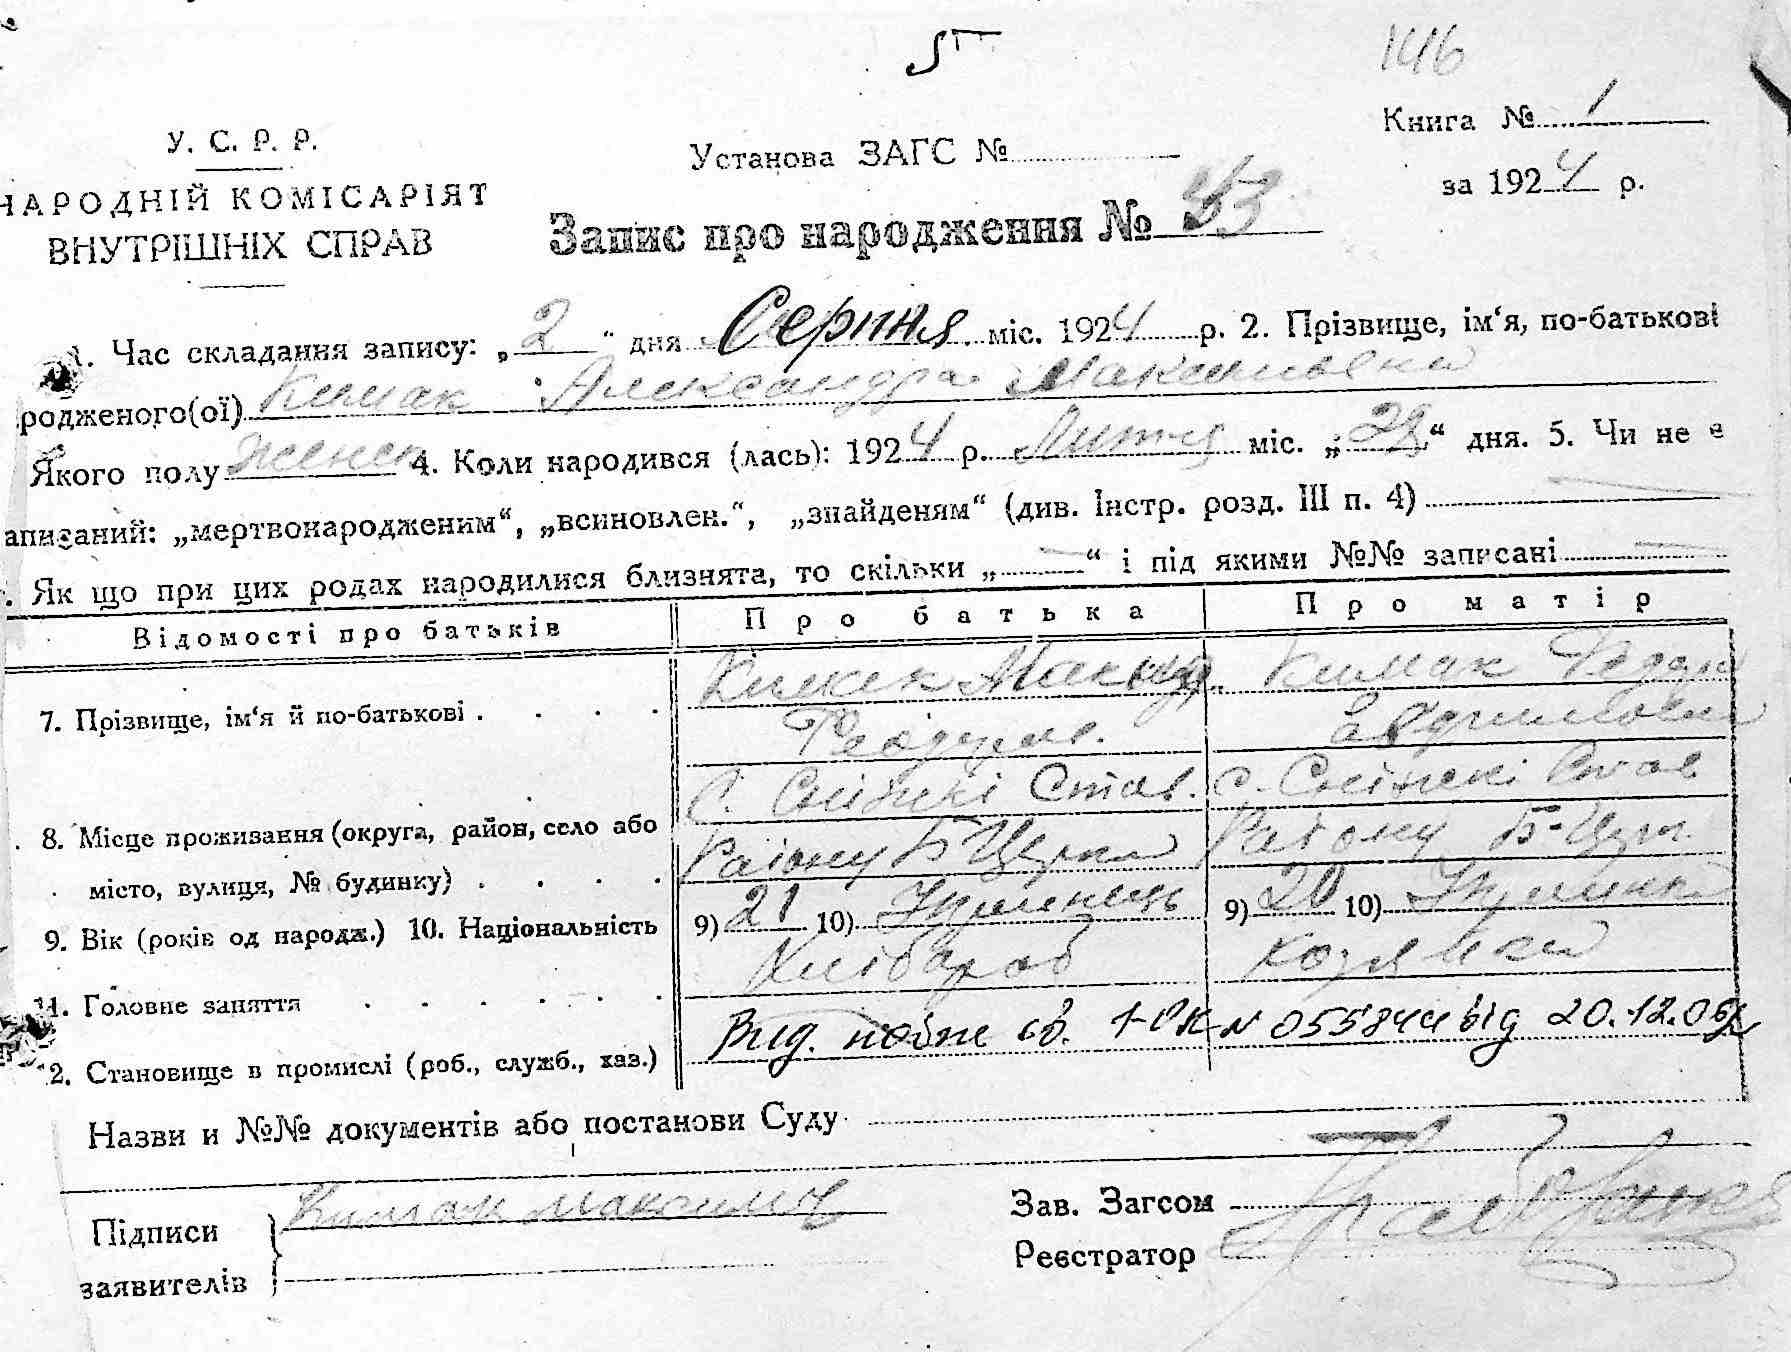 146
У. С. Р. Р.
НАРОДНІЙ КОМІСАРІЯТ
ВНУТРІШНІХ СПРАВ
Установа ЗАГС №
Книга № 1
за 1924 р.
Запис про народження № 53
1. Час складання запису: „2“ дня Серпня міс. 1924 р. 2. Прізвище, ім‘я, по-батькові
родженого(ої) Кимак Александра
Якого полу женск 4. Коли народився (лась): 1924 р. Липня міс. „28“ дня. 5. Чи не є
аписаний: „мертвонародженим“, „всиновлен.“, „знайденям“ (див. Інстр. розд. III п. 4)
. Як що при цих родах народилися близнята, то скільки „ “ і під якими №№ записані
Відомості про батьків Про батька Про матір
7. Прізвище, ім‘я й по-батькові . . . . Кимак
8. Місце проживання (округа, район, село або С. Став. с. Став
місто, вулиця, № будинку) . . . . Району Б Церкв Району Б-Церк
9. Вік (років од народж.) 10. Національність 9) 21 10) Українець 9) 20 10) Українка
11. Головне заняття . . . . . . Хлібороб
2. Становище в промислі (роб., служб., хаз.) Вид. повт. св. 1-ОК № 055844 від 20.12.05
Назви и №№ документів або постанови Суду
Підписи Кимак Максим
заявителів
Зав. Загсом
Реєстратор